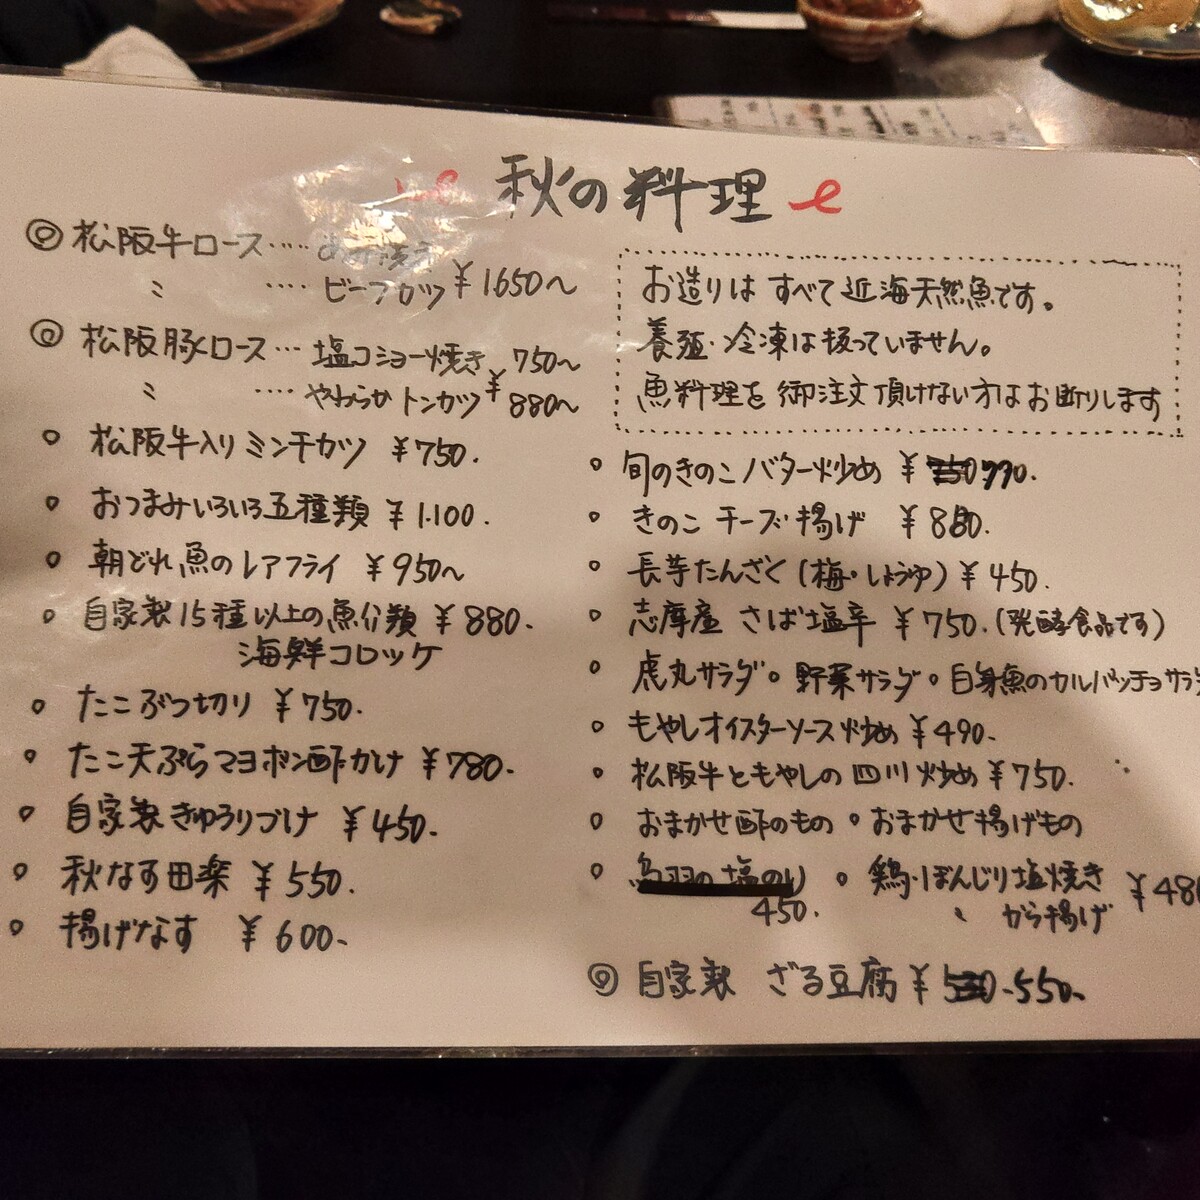 秋の料理
◎ 松阪牛ロース‥‥
〃 ‥‥ ビーフカツ ¥1650〜
◎ 松阪豚ロース… 塩コショー焼き 750〜
〃 ‥‥ やわらかトンカツ ¥880〜
。 松阪牛入りミンチカツ ¥750.
。 おつまみいろいろ五種類 ¥1.100.
。 朝どれ魚のレアフライ ¥950〜
。 自家製15種以上の魚介類 ¥880.
海鮮コロッケ
。 たこぶつ切り ¥750.
。 たこ天ぷらマヨポン酢かけ ¥780.
。 自家製きゅうりづけ ¥450.
。 秋なす田楽 ¥550.
。 揚げなす ¥600-
お造りは すべて近海天然魚です。
養殖・冷凍は扱っていません。
魚料理を御注文頂けない方はお断りします
。 旬のきのこバター炒め ¥770.
。 きのこ チーズ揚げ ¥880.
。 長芋たんざく(梅・しょうゆ) ¥450.
。 志摩産 さば塩辛 ¥750.(発酵食品です)
。 虎丸サラダ 。野菜サラダ 。白身魚のカルパッチョサラ
。 もやしオイスターソース炒め ¥490-
。 松阪牛ともやしの四川炒め ¥750.
。 おまかせ酢のもの 。おまかせ揚げもの
。 鳥羽の塩のり 。鶏・ぼんじり塩焼き ¥480
450. 〃 から揚げ
◎ 自家製 ざる豆腐 ¥550-